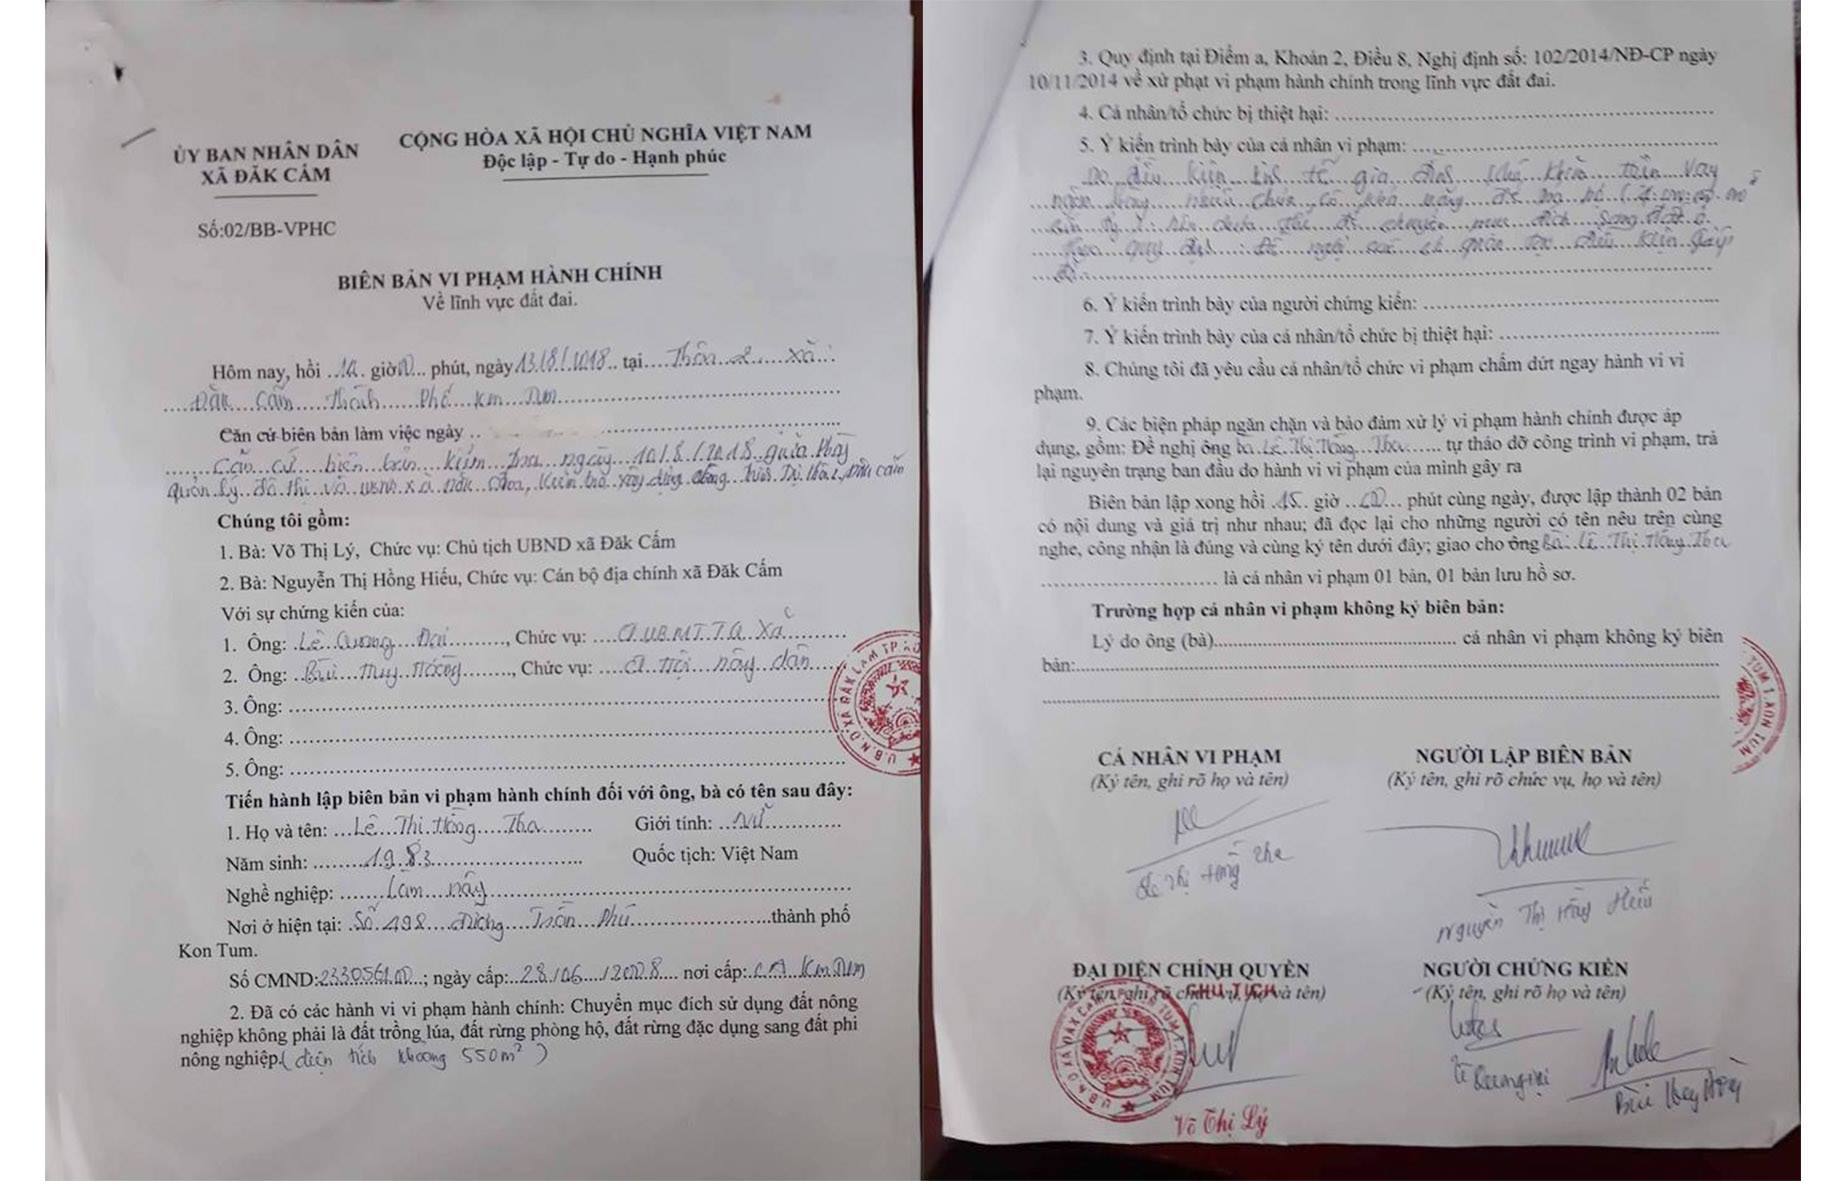 ỦY BAN NHÂN DÂN
XÃ ĐĂK CẤM
CỘNG HÒA XÃ HỘI CHỦ NGHĨA VIỆT NAM
Độc lập - Tự do - Hạnh phúc
Số:02/BB-VPHC
BIÊN BẢN VI PHẠM HÀNH CHÍNH
Về lĩnh vực đất đai.
Hôm nay, hồi 14 giờ 00 phút, ngày 13/8/2018 tại Thôn 2 xã
Đăk Cấm Thành Phố Kon Tum
Căn cứ biên bản làm việc ngày
Căn cứ biên bản kiểm tra ngày 10/8/2018 giữa Phòng
quản lý đô thị và UBND xã Đăk Cấm, kiểm tra xây dựng công trình Tại thôn 2, Đăk Cấm
Chúng tôi gồm:
1. Bà: Võ Thị Lý, Chức vụ: Chủ tịch UBND xã Đăk Cấm
2. Bà: Nguyễn Thị Hồng Hiếu, Chức vụ: Cán bộ địa chính xã Đăk Cấm
Với sự chứng kiến của:
1. Ông: Lê Quang Đại, Chức vụ: CT.UBMTTQ xã
2. Ông: Bùi Huy Hoàng, Chức vụ: CT Hội nông dân
3. Ông:
4. Ông:
5. Ông:
Tiến hành lập biên bản vi phạm hành chính đối với ông, bà có tên sau đây:
1. Họ và tên: Lê Thị Hồng Tha Giới tính: Nữ
Năm sinh: 1983 Quốc tịch: Việt Nam
Nghề nghiệp: Làm nông
Nơi ở hiện tại: Số 498 đường Trần Phú thành phố
Kon Tum.
Số CMND: ngày cấp: 28/06/2008 nơi cấp: CA Kon Tum
2. Đã có các hành vi vi phạm hành chính: Chuyển mục đích sử dụng đất nông
nghiệp không phải là đất trồng lúa, đất rừng phòng hộ, đất rừng đặc dụng sang đất phi
nông nghiệp.(diện tích khoảng 550m²)
3. Quy định tại Điểm a, Khoản 2, Điều 8, Nghị định số: 102/2014/NĐ-CP ngày
10/11/2014 về xử phạt vi phạm hành chính trong lĩnh vực đất đai.
4. Cá nhân/tổ chức bị thiệt hại:
5. Ý kiến trình bày của cá nhân vi phạm:
Do điều kiện kinh tế gia đình khó khăn tiền vay
ngân hàng nhiều chưa có khả năng để
nên chưa chuyển mục đích sang đất ở
theo quy định. Đề nghị các cơ quan tạo điều kiện giúp
đỡ.
6. Ý kiến trình bày của người chứng kiến:
7. Ý kiến trình bày của cá nhân/tổ chức bị thiệt hại:
8. Chúng tôi đã yêu cầu cá nhân/tổ chức vi phạm chấm dứt ngay hành vi vi
phạm.
9. Các biện pháp ngăn chặn và bảo đảm xử lý vi phạm hành chính được áp
dụng, gồm: Đề nghị ông bà Lê Thị Hồng Tha tự tháo dỡ công trình vi phạm, trả
lại nguyên trạng ban đầu do hành vi vi phạm của mình gây ra
Biên bản lập xong hồi 15 giờ 00 phút cùng ngày, được lập thành 02 bản
có nội dung và giá trị như nhau; đã đọc lại cho những người có tên nêu trên cùng
nghe, công nhận là đúng và cùng ký tên dưới đây; giao cho ông bà Lê Thị Hồng Tha
là cá nhân vi phạm 01 bản, 01 bản lưu hồ sơ.
Trường hợp cá nhân vi phạm không ký biên bản:
Lý do ông (bà) cá nhân vi phạm không ký biên
bản:
CÁ NHÂN VI PHẠM
(Ký tên, ghi rõ họ và tên)
Lê Thị Hồng Tha
NGƯỜI LẬP BIÊN BẢN
(Ký tên, ghi rõ chức vụ, họ và tên)
Nguyễn Thị Hồng Hiếu
ĐẠI DIỆN CHÍNH QUYỀN
(Ký tên, ghi rõ chức vụ, họ và tên)
CHỦ TỊCH
Võ Thị Lý
NGƯỜI CHỨNG KIẾN
(Ký tên, ghi rõ họ và tên)
Lê Quang Đại
Bùi Huy Hoàng